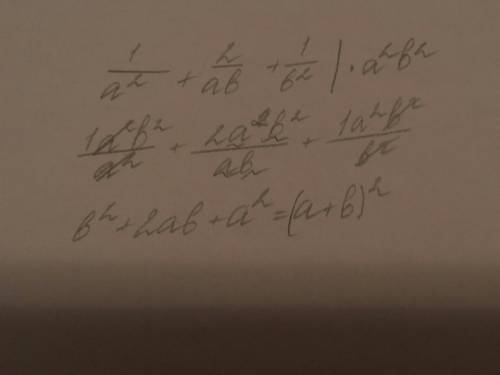 1/a² + 2/ab + 1/b² | · a²b²
1a²b²/a² + 2a²b²/ab + 1a²b²/b²
b² + 2ab + a² = (a+b)²